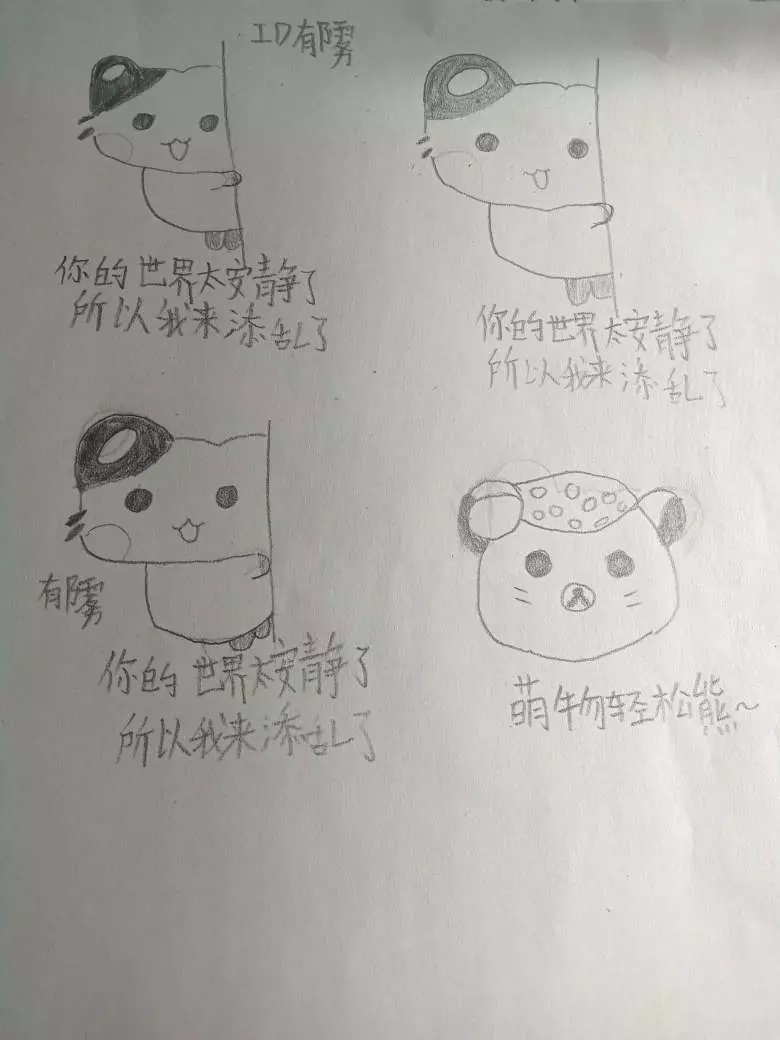 ID有雳
你的世界太安静了
所以我来添乱了
你的世界太安静了
所以我来添乱了
有雳
你的世界太安静了
所以我来添乱了
萌物轻松熊~